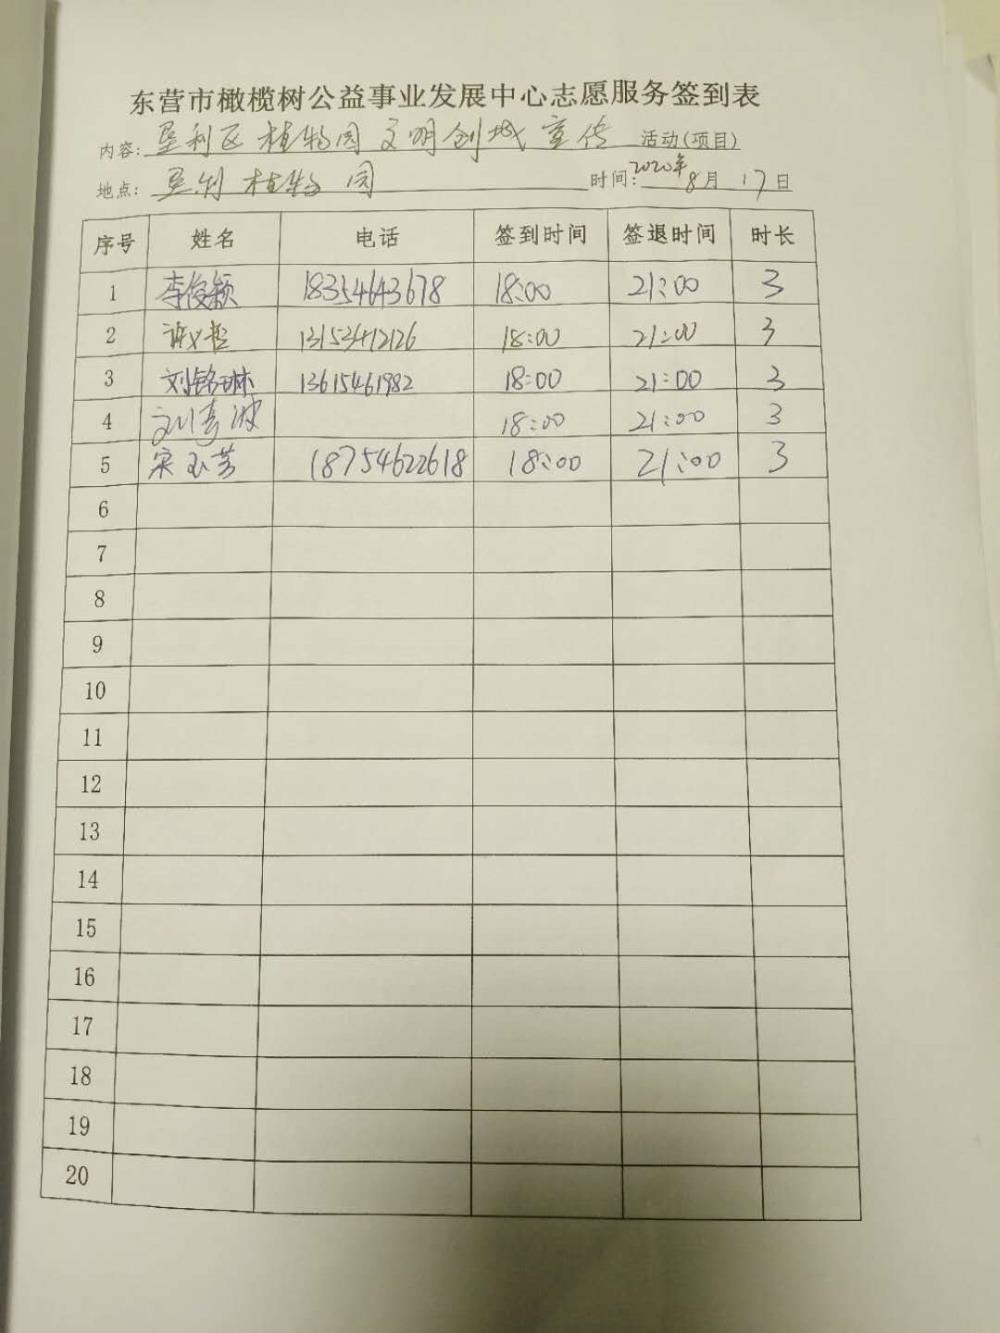 东营市橄榄树公益事业发展中心志愿服务签到表
内容: 垦利区植物园文明创城宣传 活动(项目)
地点: 垦利植物园 时间: 2020年8月17日
序号 姓名 电话 签到时间 签退时间 时长
1 李俊颖 18354643678 18:00 21:00 3
2 13153412126 18:00 21:00 3
3 刘铭琳 13615461982 18:00 21:00 3
4 18:00 21:00 3
5 宋玉芳 18754622618 18:00 21:00 3
6
7
8
9
10
11
12
13
14
15
16
17
18
19
20